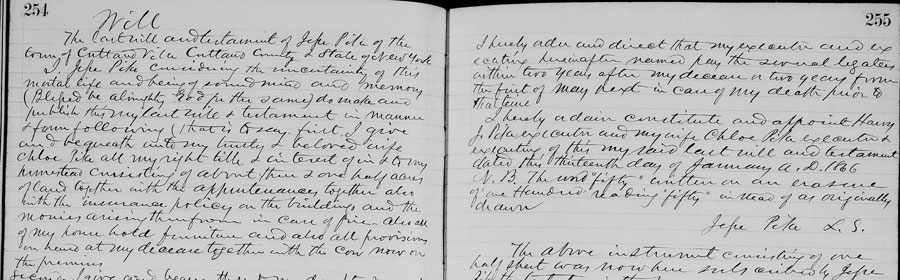 254
Will
The last will and testament of Jesse Pike of the
town of Cortlandville Cortland County & State of New York
I Jesse Pike considering the uncertainty of this
mortal life and being of sound mind and memory
(Blessed be almighty God for the same) do make and
publish this my last will & testament in manner
& form following (that is to say. first, I give
and bequeath unto my trusty & beloved wife
Chloe Pike all my right title & interest of in & to my
homestead consisting of about three & one half acres
of land together with the appurtenances together also
with the insurance policy on the buildings and the
monies arising therefrom in case of fire. Also all
of my house hold furniture and also all provisions
on hand at my decease together with the cow now on
the premises
Second I give and
255
I hereby order and direct that my executor and ex
ecutrix hereinafter named pay the several legacies
within two years after my decease or two years from
the first of May next in case of my death prior to
that time
I hereby ordain constitute and appoint Harvey
J. Pike executor and my wife Chloe Pike executor &
executrix of this my said last will and testament
dated this thirteenth day of January A.D. 1866
N.B. The word "fifty" written on an erasure
of "one Hundred" reading "fifty" instead of as originally
drawn
Jesse Pike L.S.
The above instrument consisting of one
half sheet was now here subscribed by Jesse